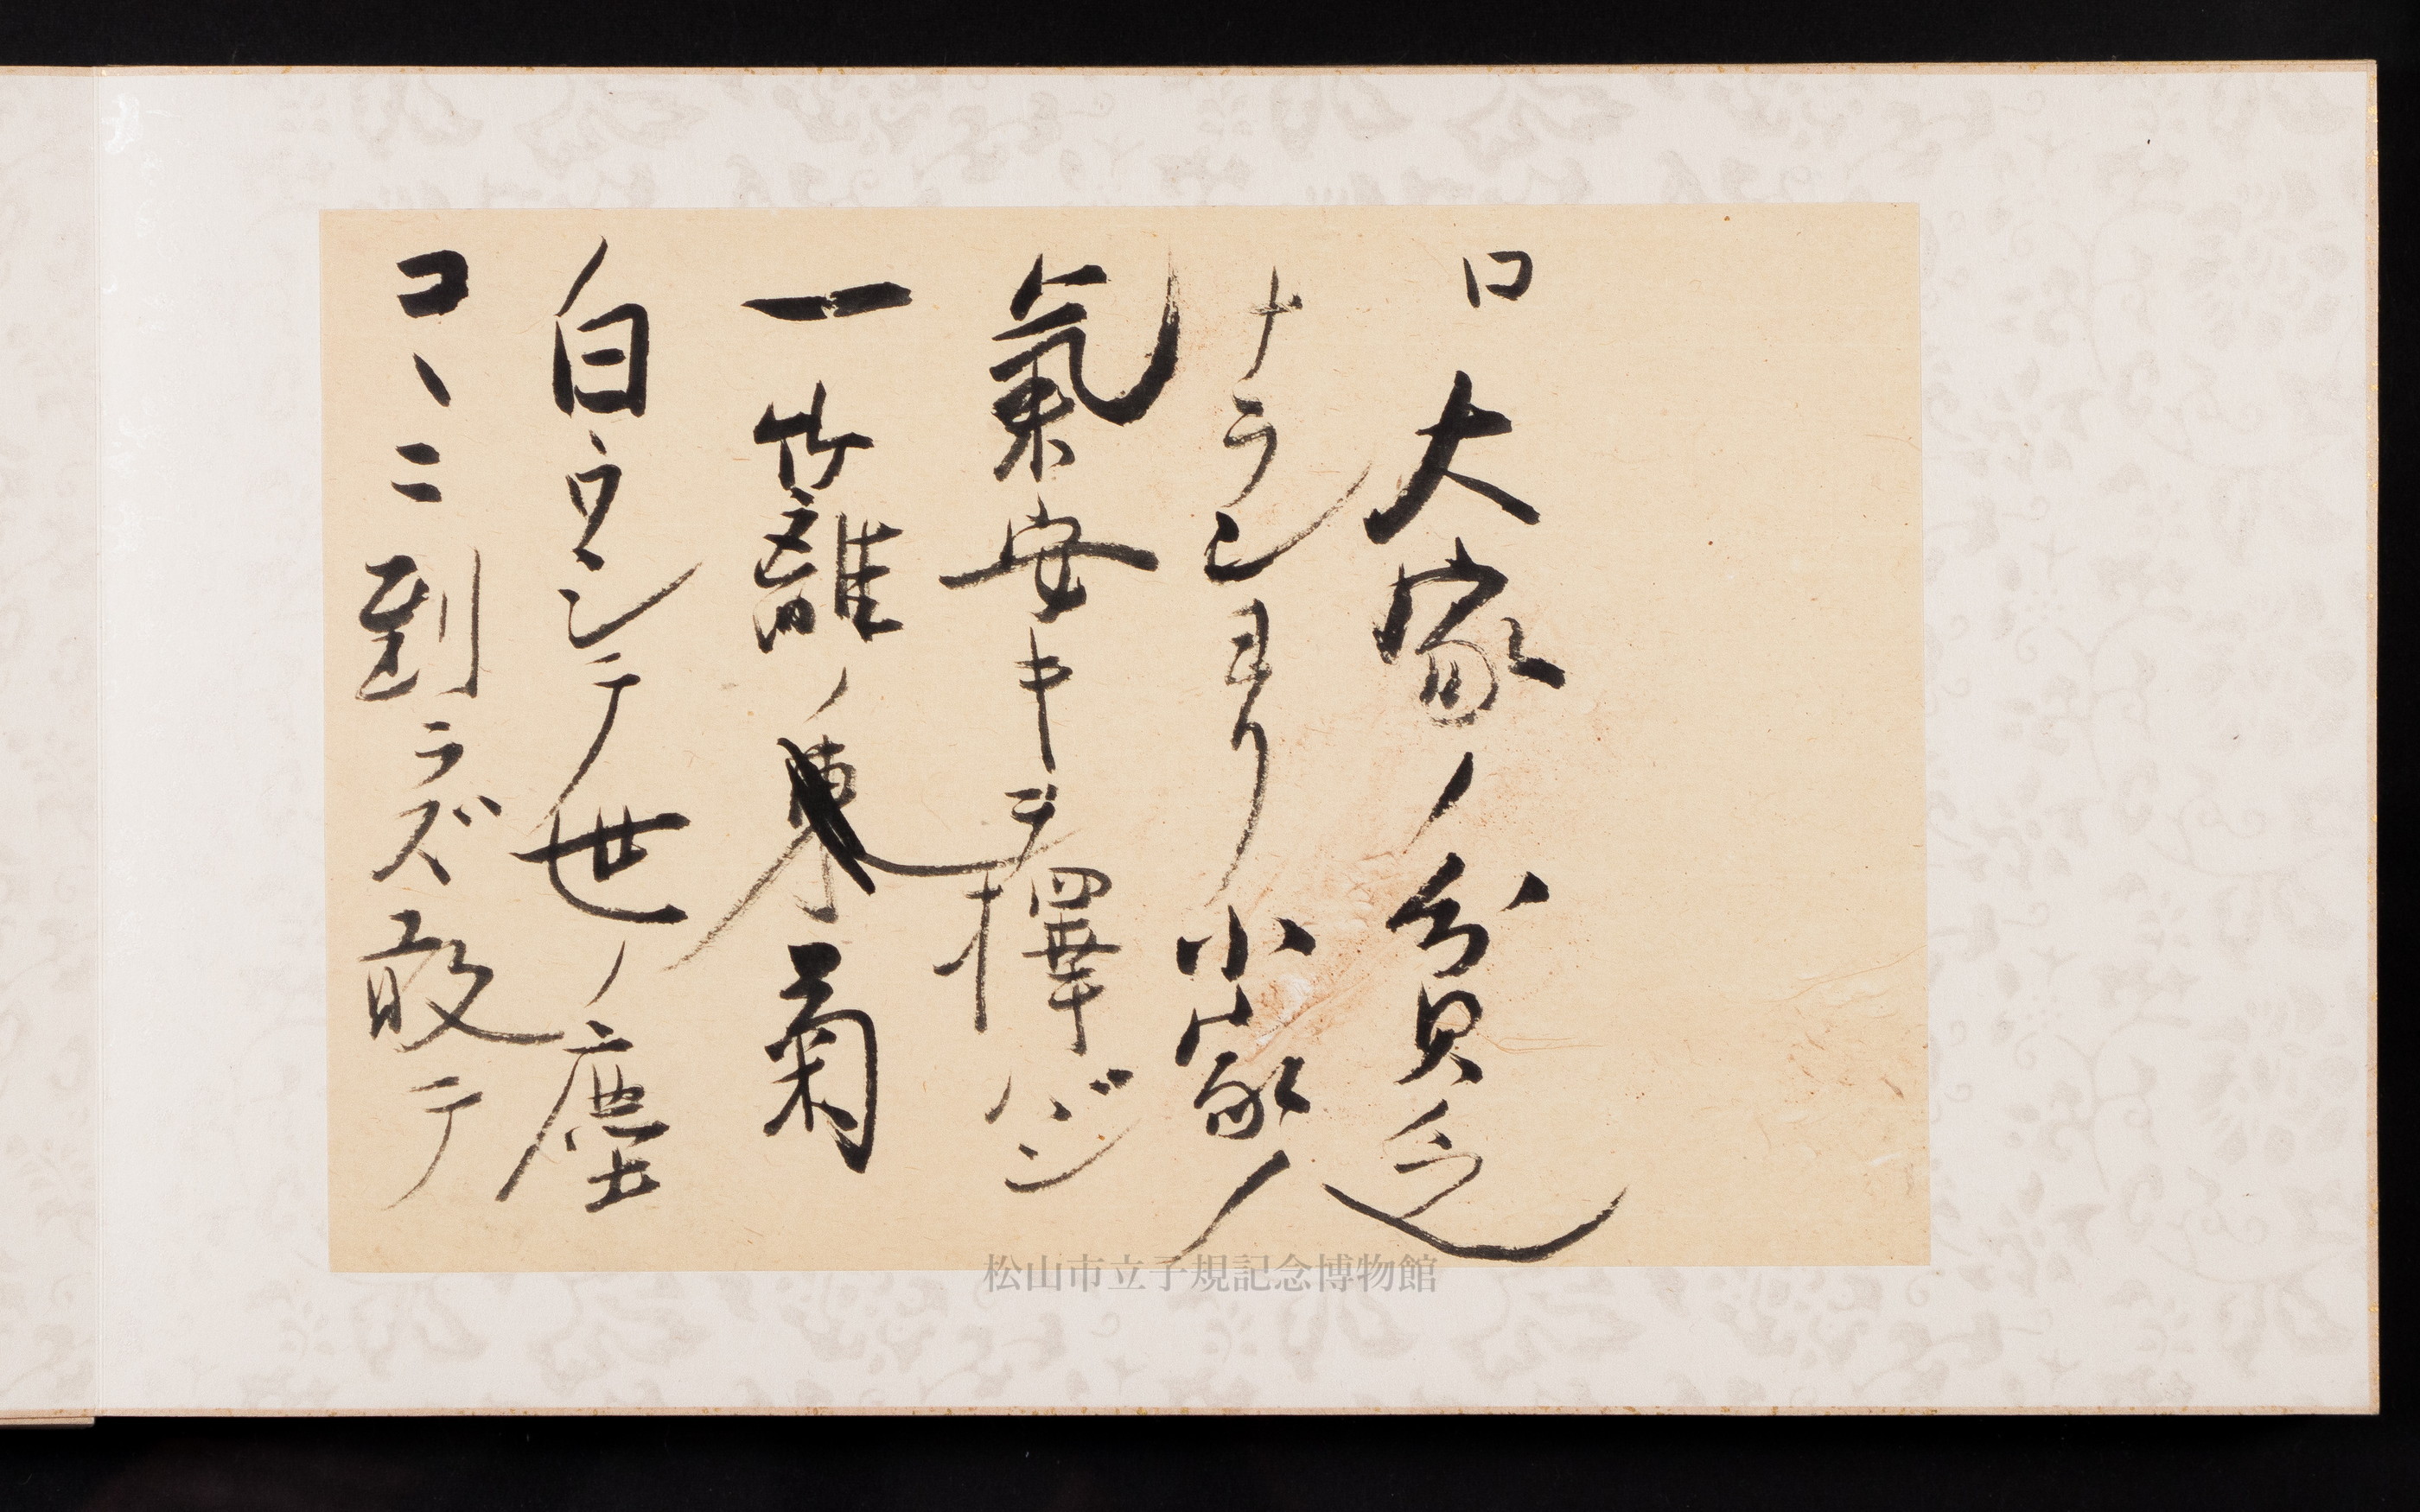 口大家ノ貧乏
ナランヨリ小家ノ
氣安キヲ擇バン
一籬ノ東菊
白ウシテ世ノ塵
コヽニ到ラズ敢テ
松山市立子規記念博物館